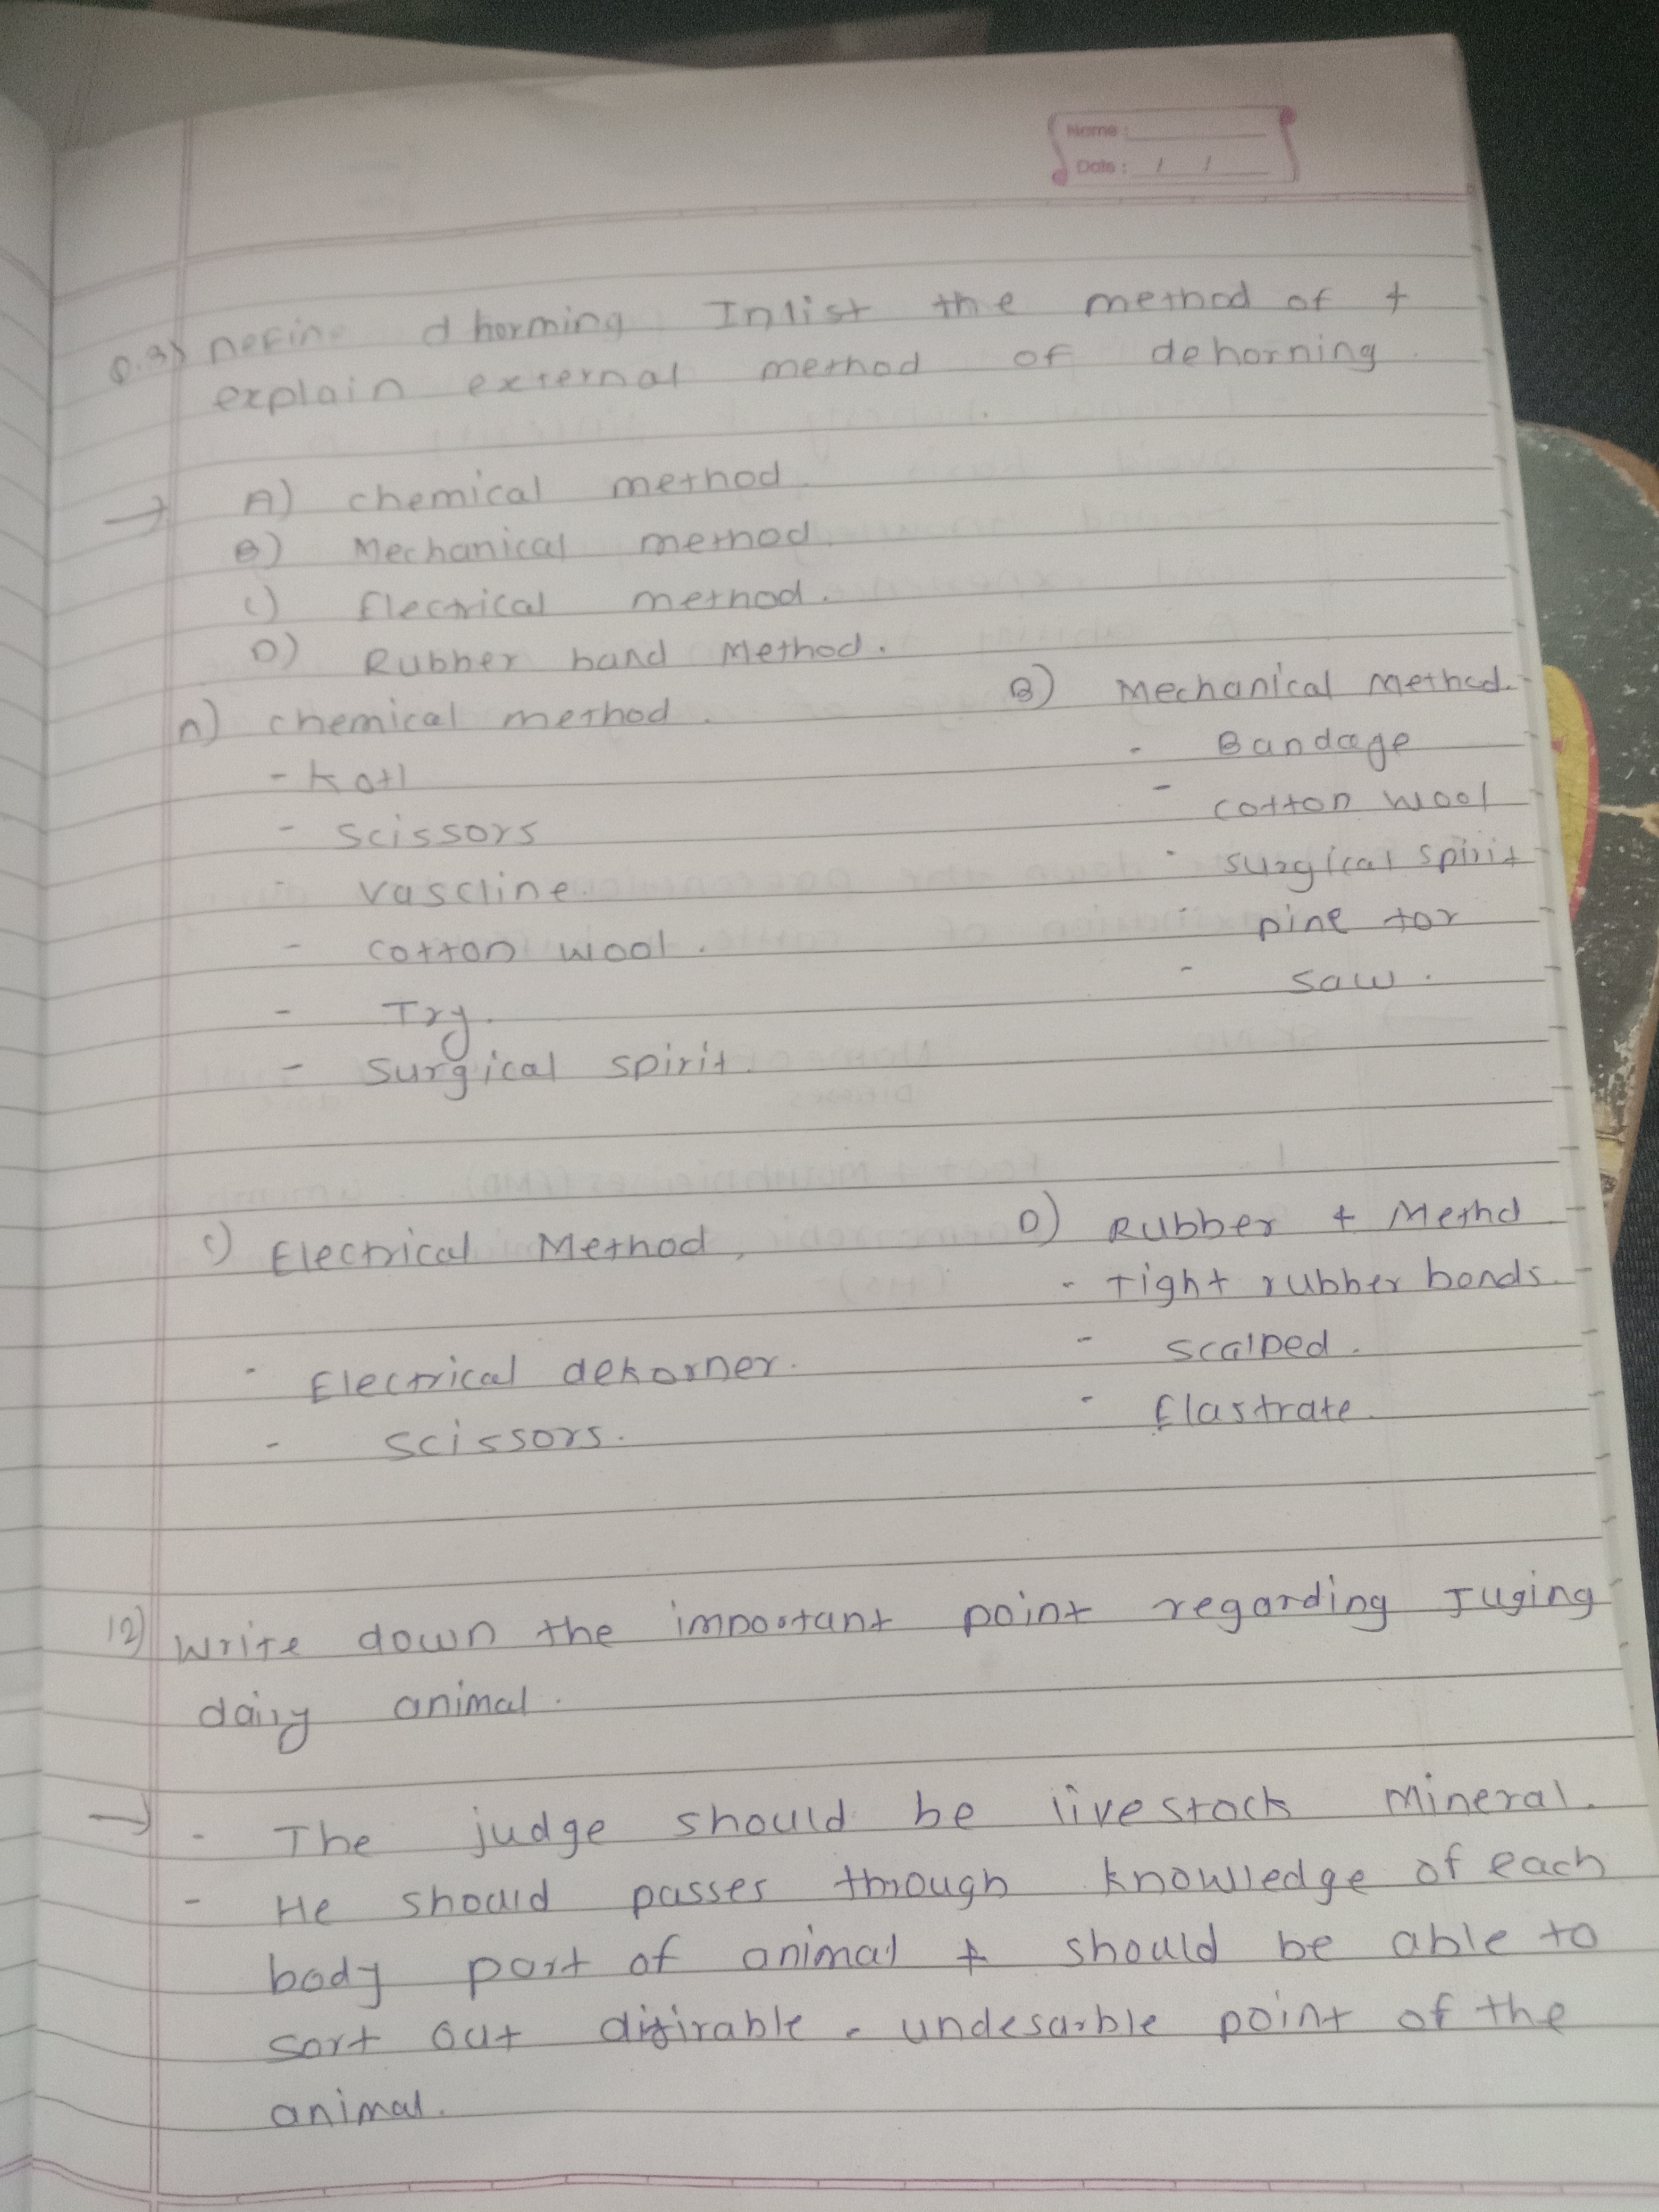 Name :
Date : / /
Q.3) Define dhorming Inlist the method of +
explain external method of dehorning
→ A) chemical method.
B) Mechanical method.
C) Electrical method.
D) Rubber band Method.
A) chemical method.
- Kotl
- scissors
- vascline.
- cotton wool.
- Try.
- Surgical spirit.
B) Mechanical Method.
- Bandage
- cotton wool
- surgical spirit
- pine tor
- saw.
C) Electrical Method,
- Electrical dehorner.
- scissors.
D) Rubber + Methd
- Tight rubber bonds.
- scalped.
- Elastrate.
12) Write down the important point regarding Juging
dairy animal.
→ - The judge should be livestock Mineral.
- He should passes through knowledge of each
body part of animal + should be able to
sort out disirable . undesarble point of the
animal.